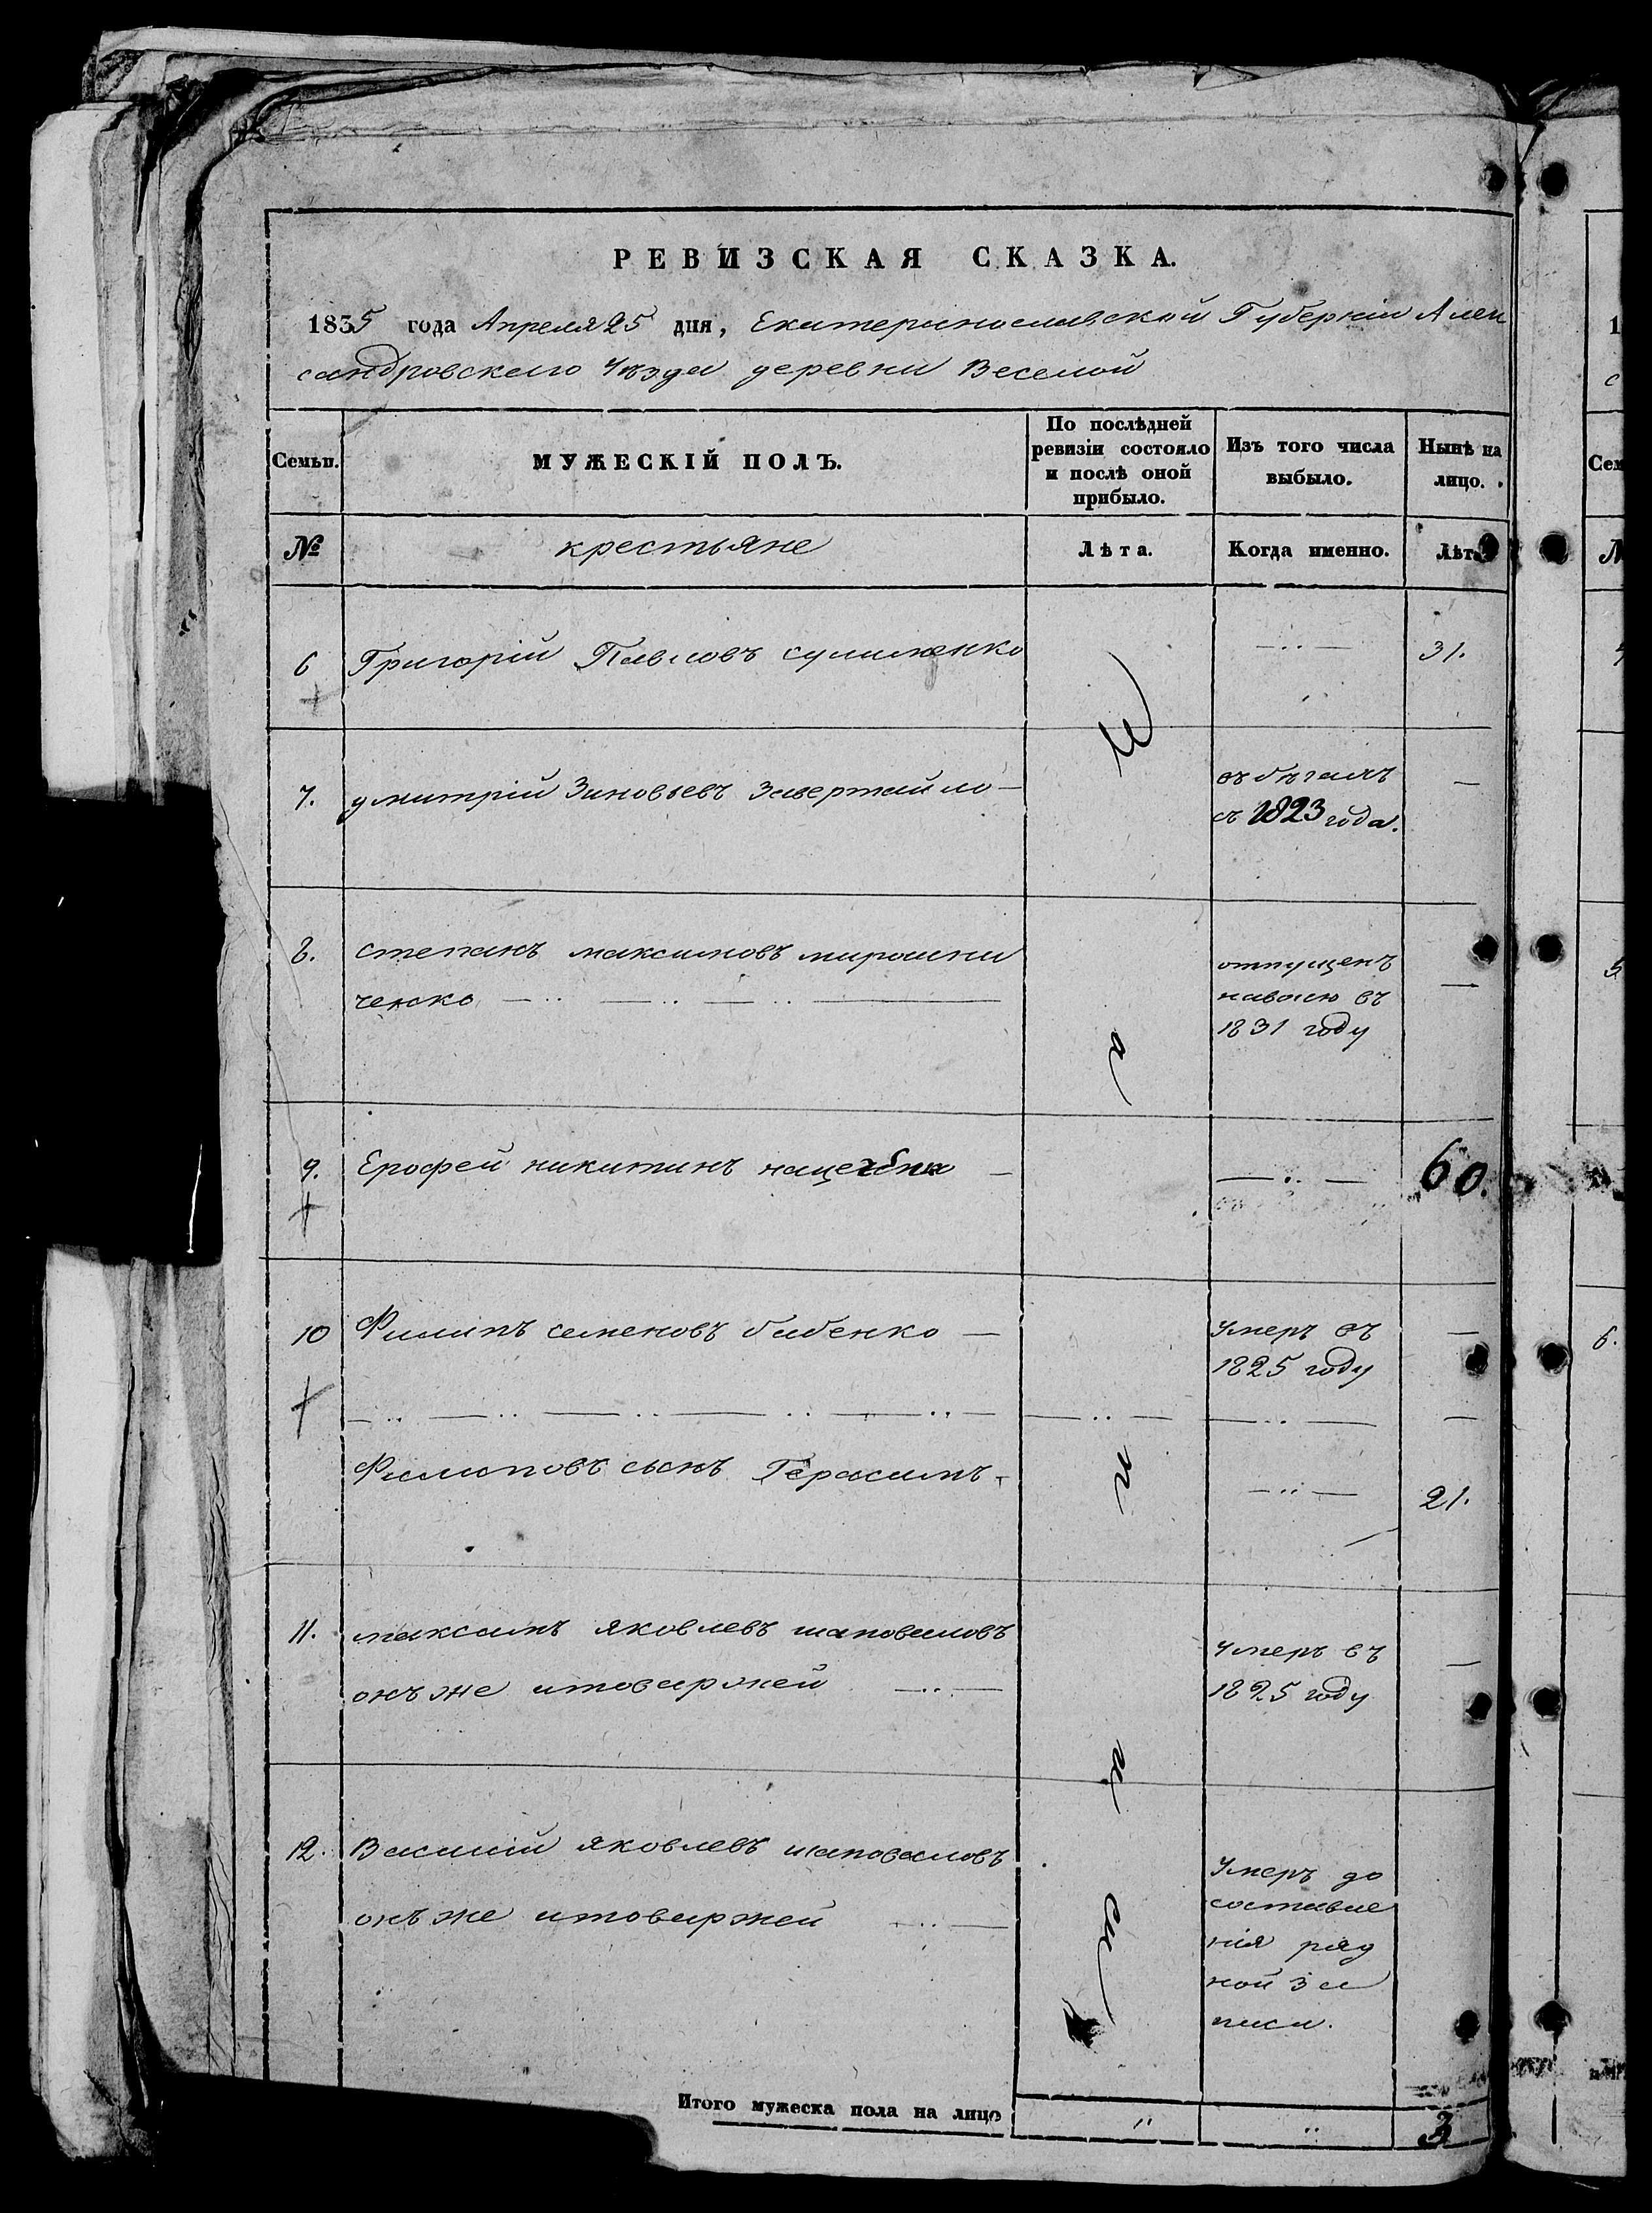 РЕВИЗСКАЯ СКАЗКА.
1835 года Апреля 25 дня, Екатеринославской Губерніи Алек
сандровскаго Уѣзда деревни Веселой
Семьи.
МУЖЕСКІЙ ПОЛЪ.
По послѣдней
ревизіи состояло
и послѣ оной
прибыло.
Изъ того числа
выбыло.
Нынѣ на
лицо.
№
крестьяне
Лѣта.
Когда именно.
Лѣта
6 Григорій Павловъ сулименко —··— 31.
7. дмитрій Зиновьевъ Завертайло —
въ бѣгахъ
съ 1823 года.
—
8. степанъ максимовъ мирошни
ченко
отпущенъ
наволю въ
1831 году
—
9. Ерофей никитинъ — —··— 60.
10 Филипъ семеновъ бабенко —
умеръ въ
1825 году
—
Филиповъ сынъ Герасимъ — —··— 21.
11. максимъ яковлевъ шаповаловъ
онъ же
умеръ въ
1825 году
—
12. Василій яковлевъ шаповаловъ
онъ же
умеръ до
составле
нія ряд
ной за
писи.
Итого мужеска пола на лицо 3